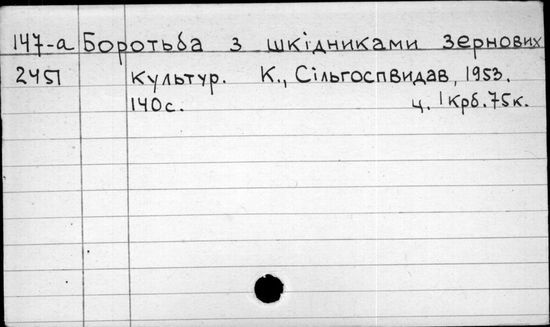 147-а Боротьба з шкідниками зернових
2451 культур. К., Сільгоспвидав, 1953.
140с. ц. 1крб.75к.